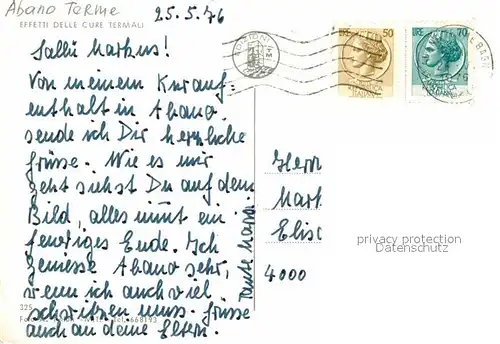 Abano Terme
25.5.76
EFFETTI DELLE CURE TERMALI
Sallü Markus!
Von meinem Kurauf-
enthalt in Abano
sende ich Dir herzliche
Grüsse. Wie es mir
geht siehst Du auf dem
Bild, alles nimt ein
feuriges Ende. Ich
geniesse Abano sehr,
wenn ich auch viel
schwitzen muss. Grüsse
auch an deine Eltern.
Tante
LIRE 50
LIRE 70
Herrn
Mark
Elis
4000
privacy protection
Datenschutz
325
668193